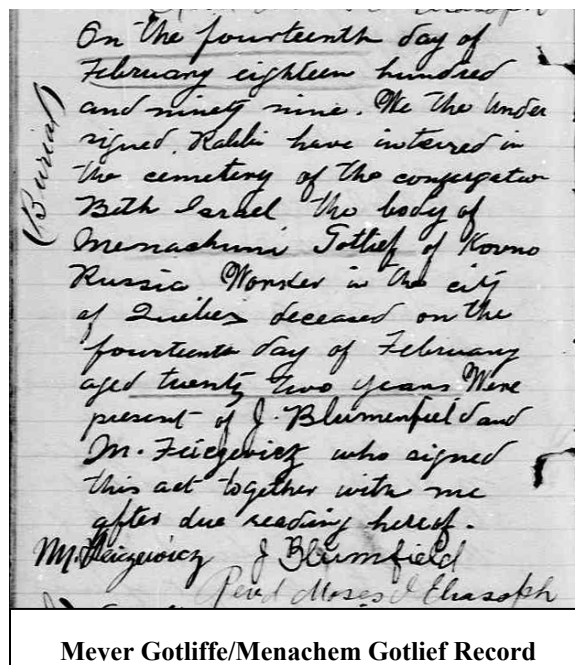 On the fourteenth day of
February eighteen hundred
and ninety nine. We the under
signed. Rabbi have interred in
the cemetery of the congregation
Beth Israel the body of
Menachumi Gotlief of Kovno
Russia Worker in the city
of Quebec deceased on the
fourteenth day of February
aged twenty two years Were
present of J. Blumenfield and
M. Feiczevicz who signed
this act together with me
after due reading hereof.
M. Feiczewicz J Blumfield
Revd Moses J Eliasoph
(Burial)
Meyer Gotliffe/Menachem Gotlief Record